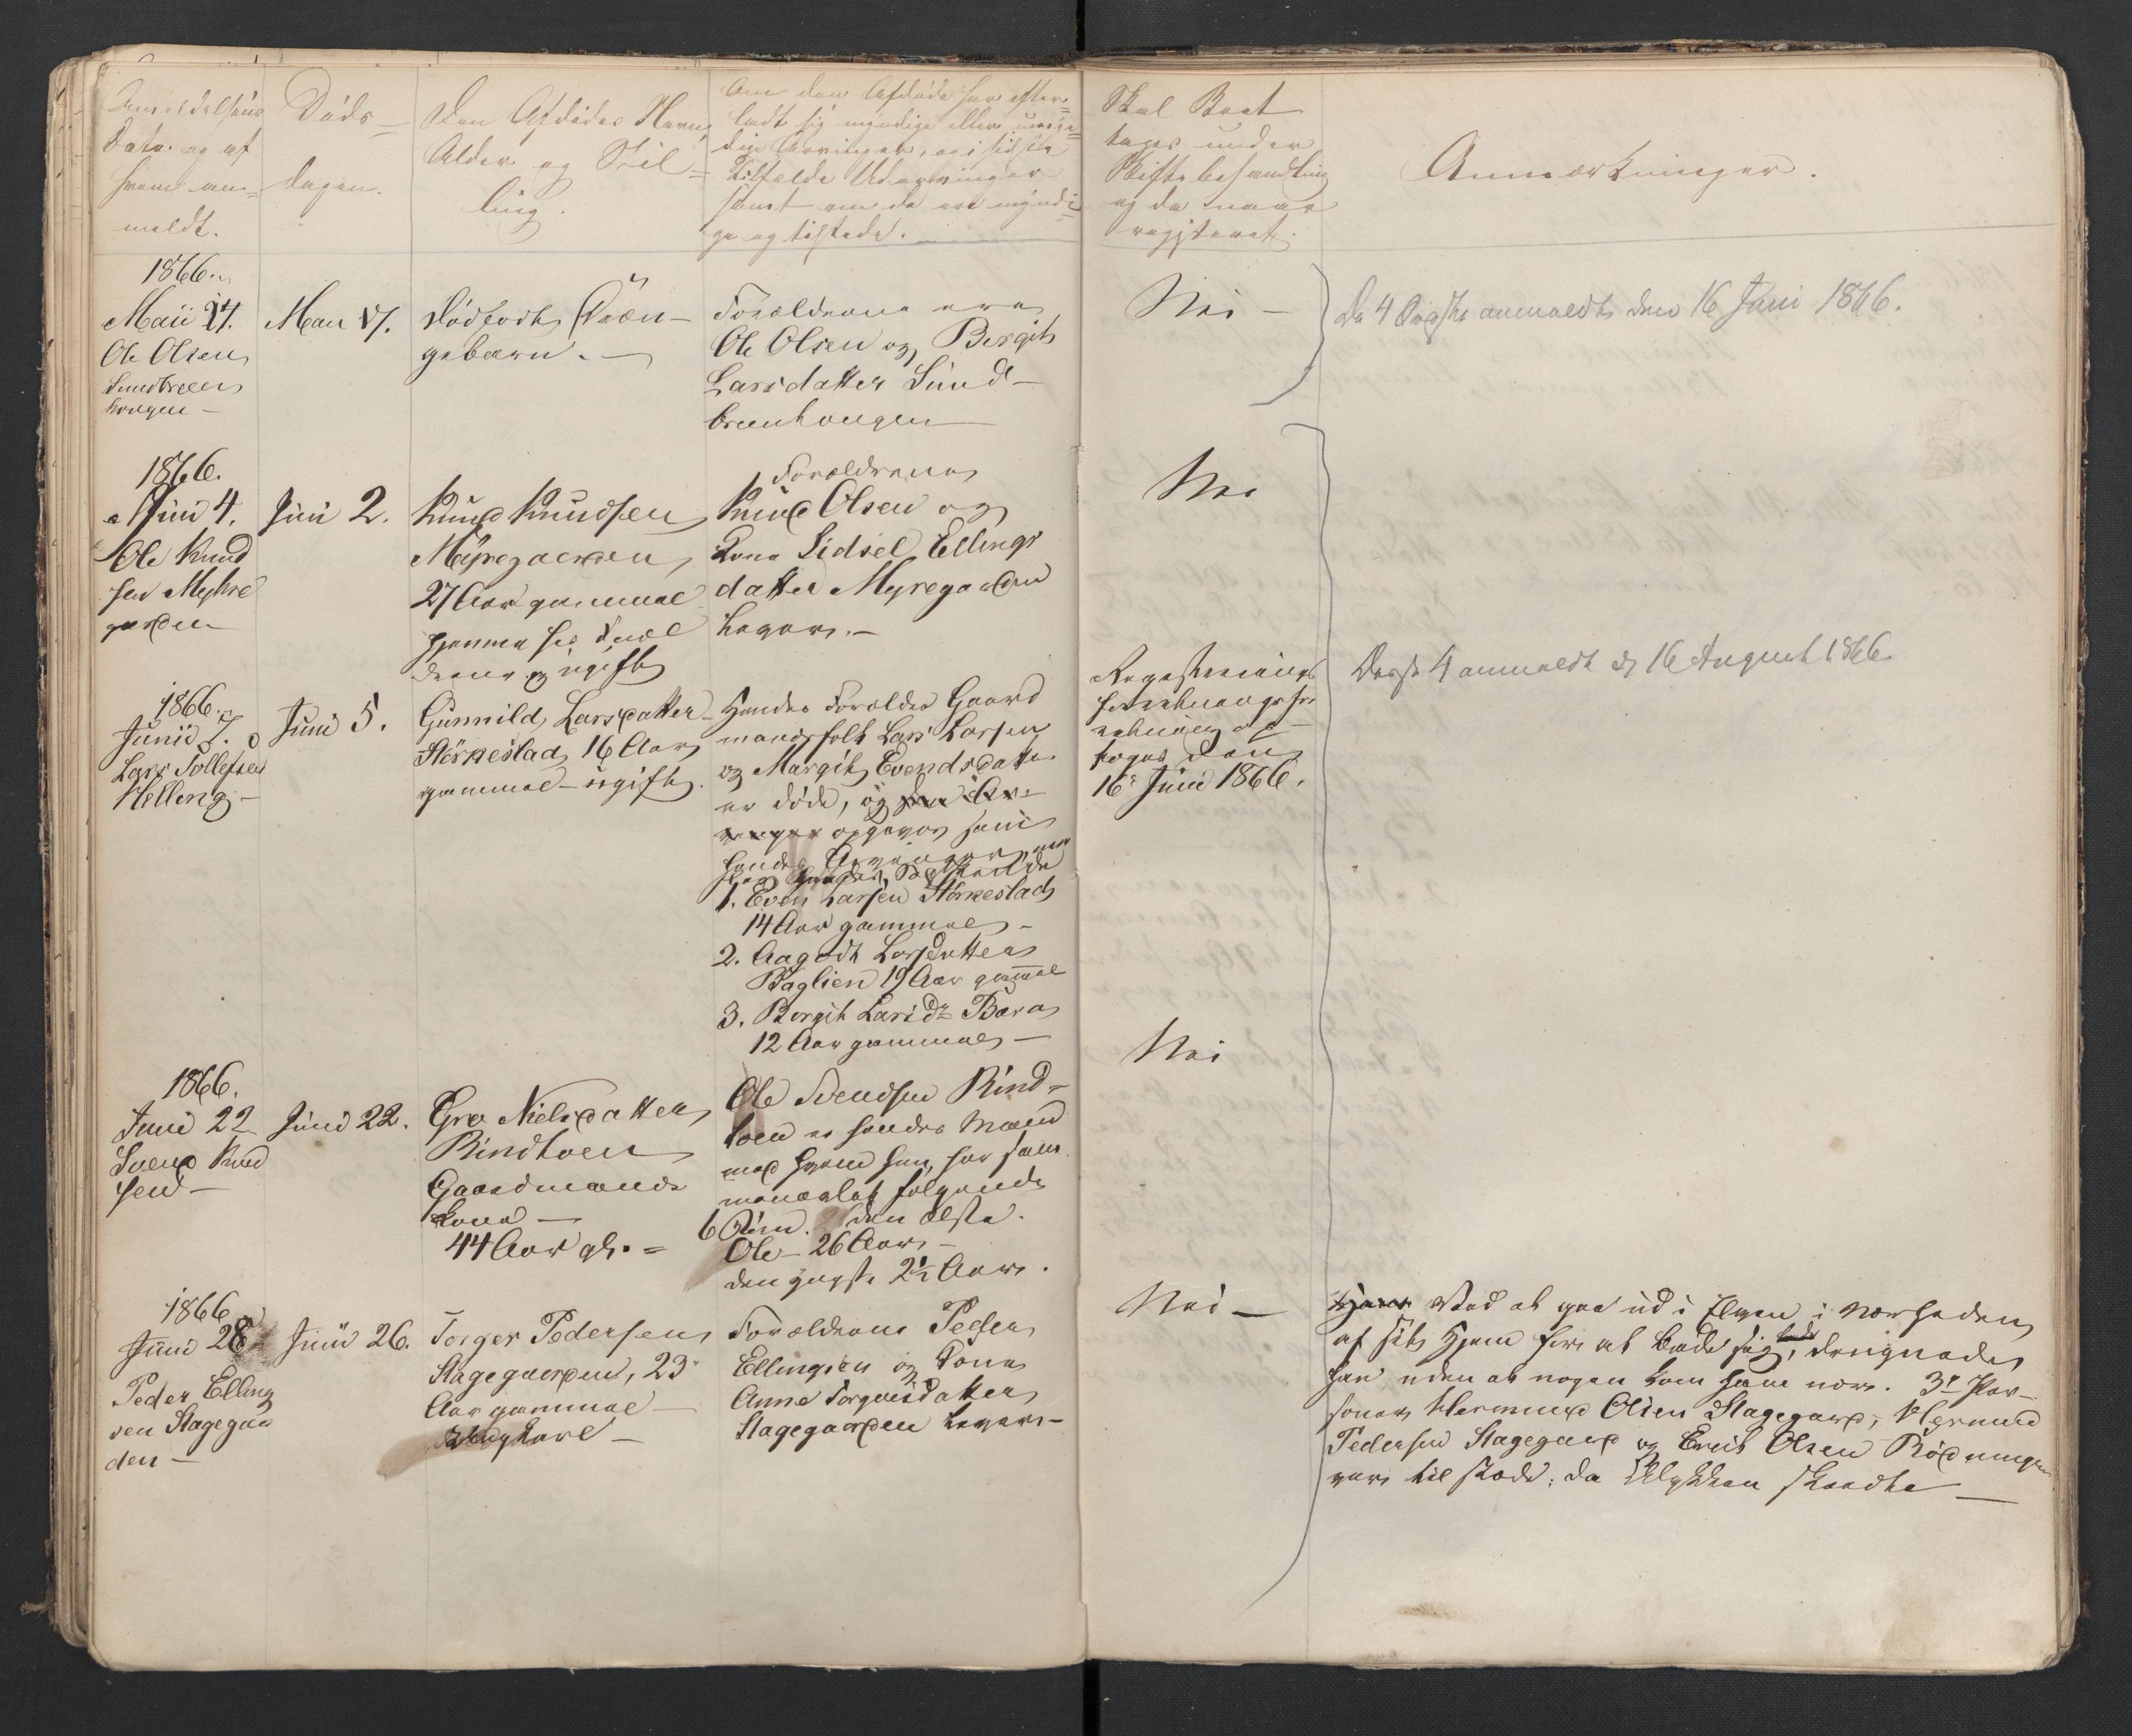 Anmeldelsens
Dato og af
hvem an=
meldt.
Døds=
dagen.
Den Afdødes Navn,
Alder og Stil=
ling.
Om den Afdøde har efter=
ladt sig myndige eller umyn=
dige Arvinger, og i sidste
Tilfælde Udarvinger
samt om de ere myndi=
ge og tilstede.
Skal Boet
tages under
Skiftebehandling
og da naar
registeret.
Anmærkninger.
1866.
Maii 24.
Ole Olsen
Sundbreen
hougen –
Mai 17.
Dødfødt Dræn-
gebarn. –
Forældrene ere
Ole Olsen og Bergit
Larsdatter Sund-
breenhougen
Nei –
De 4 Dødsfald anmeldt den 16 Juni 1866.
1866.
Juni 4.
Ole Knud
sen Myhre
garden
Juni 2.
Knud Knudsen
Myregaarden
27 Aar gammel
hjemme hos Foræl
drene og ugift
Forældrene
Knud Olsen og
Kone Sidsel Ellings
datter Myregaarden
lever. –
Nei
1866.
Junii 7.
Lars Tollefsen
Helling –
Juni 5.
Gunnild Larsdatter
Størkestad 16 Aar
gammel – ugift.
Hendes Forældre Gaard
mandsfolk Lars Larsen
og Margit Evendsdatter
er døde, og
opgives som
hendes Arvinger
Sødskende
1. Even Larsen Størkestad
14 Aar gammel –
2. Aagodt Larsdatter
Baglien 19 Aar gammel
3. Bergit Larsdr Bæra
12 Aar gammel –
Registrerings
forretning
den
16de Juni 1866.
anmeldt d 16 August 1866
1866.
Juni 22
Svend Knud
sen –
Juni 22.
Gro Nielsdatter
Rindtoen
Gaardmands
Kone –
44 Aar gl. =
Ole Svendsen Rind-
toen er hendes Mand
med hvem hun har sam
menavlet følgende
6 Børn. den ælste.
Ole – 26 Aar –
den yngste 2½ Aar.
Nei
1866
Juni 28
Peder Elling
sen Stagegaa
den –
Junii 26.
Torger Pedersen
Stagegaarden, 23
Aar gammel –
Ungkarl –
Forældrene Peder
Ellingsen og Kone
Anne Torgersdatter
Stagegaarden lever –
Nei –
Ved at gaa ud i Elven i Nærheden
af sit Hjem for at bade sig, druknede
han uden at nogen kom ham nær. 3de Per-
soner Hermund Olsen Stagegard, Hermund
Pedersen Stagegard og Erik Olsen Rødningen
vare tilstæde, da Ulykken skeedte –